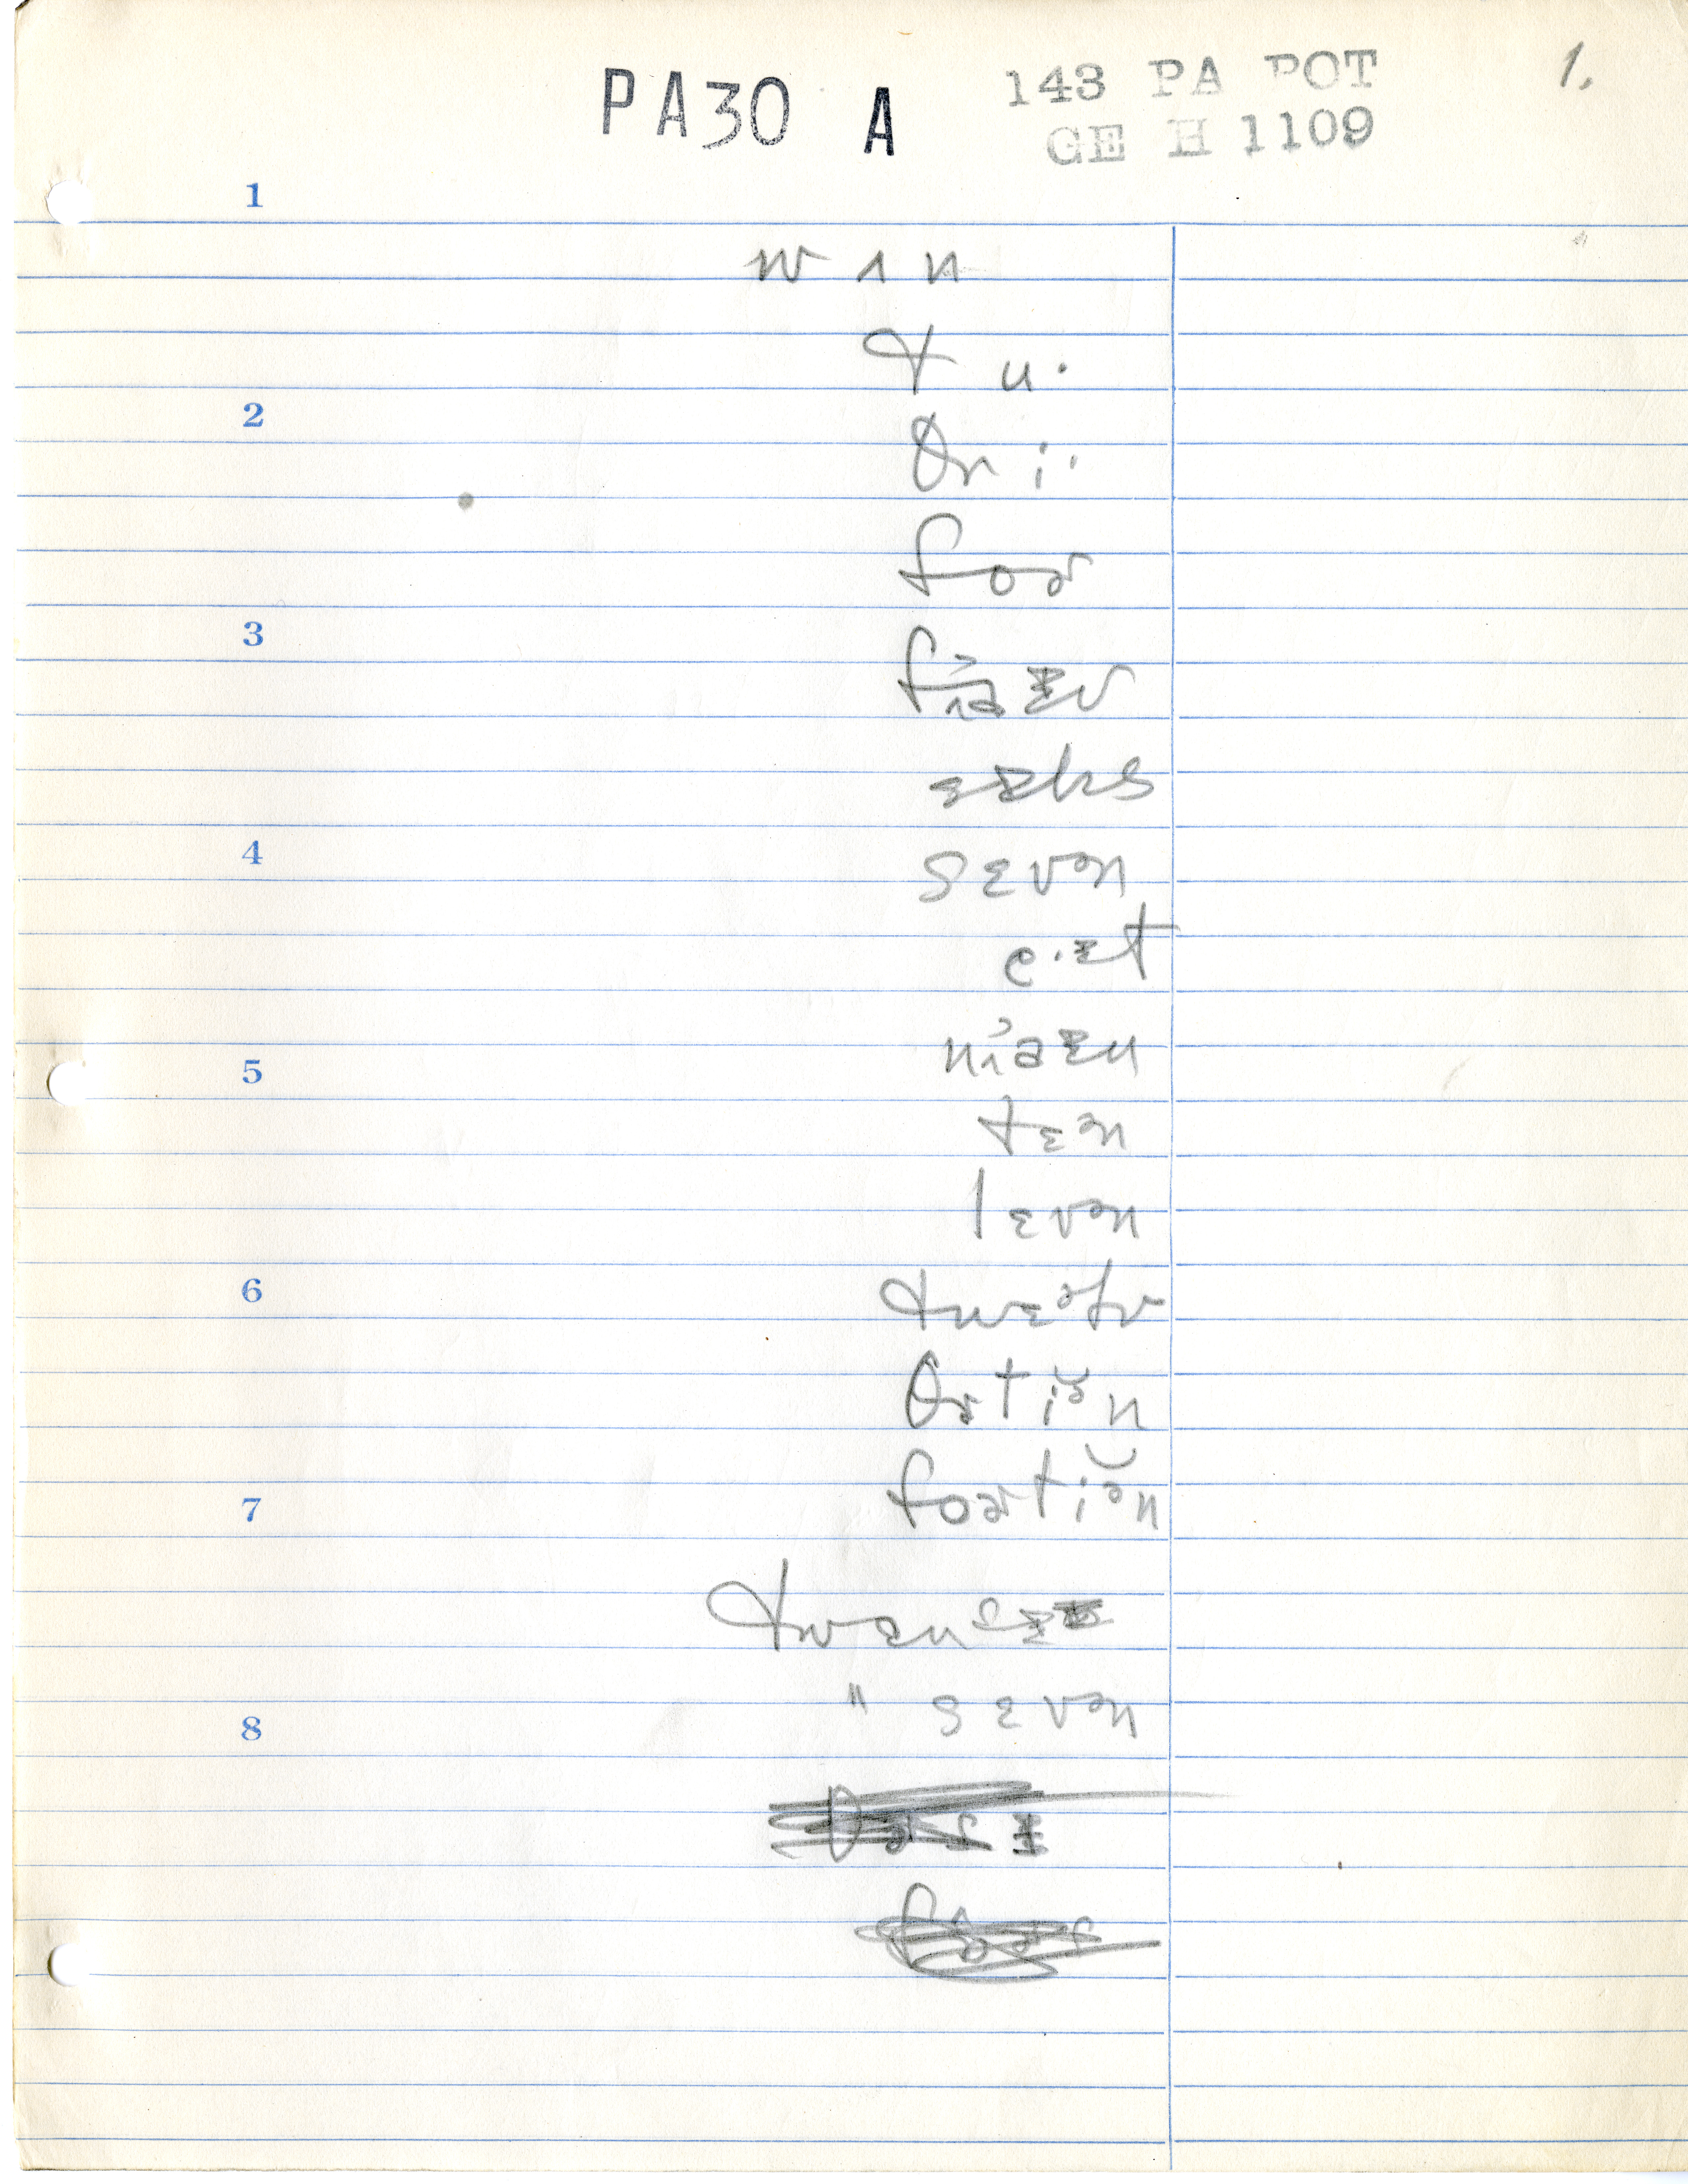 PA30 A 143 PA POT 1.
GE H 1109
1
w ʌ n
t u·
2
θr i·
foɚ
3
fʌɪ̯əɪv
sɪks
4
sɛvən
e·ɪt
nʌɪəɪn
5
tɛən
lɛvən
6
twɛəlv
θɚtiə̆n
foɚtiə̆n
7
twɛnsɪ
" sɛvən
8